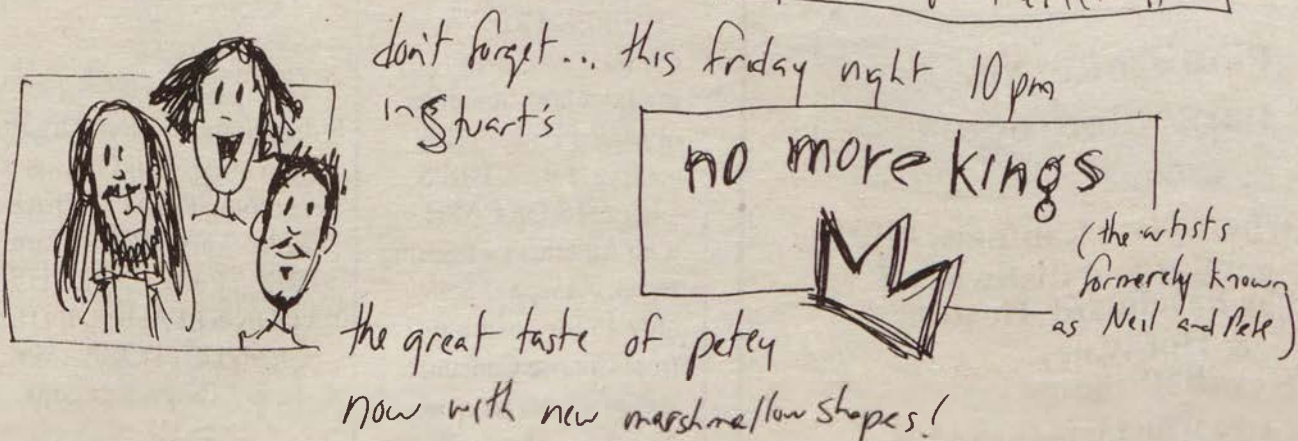 don't forget... this friday night 10pm
in Stuart's
no more kings
(the artists
formerely known
as Neil and Pete)
the great taste of petey
now with new marshmallow shapes!